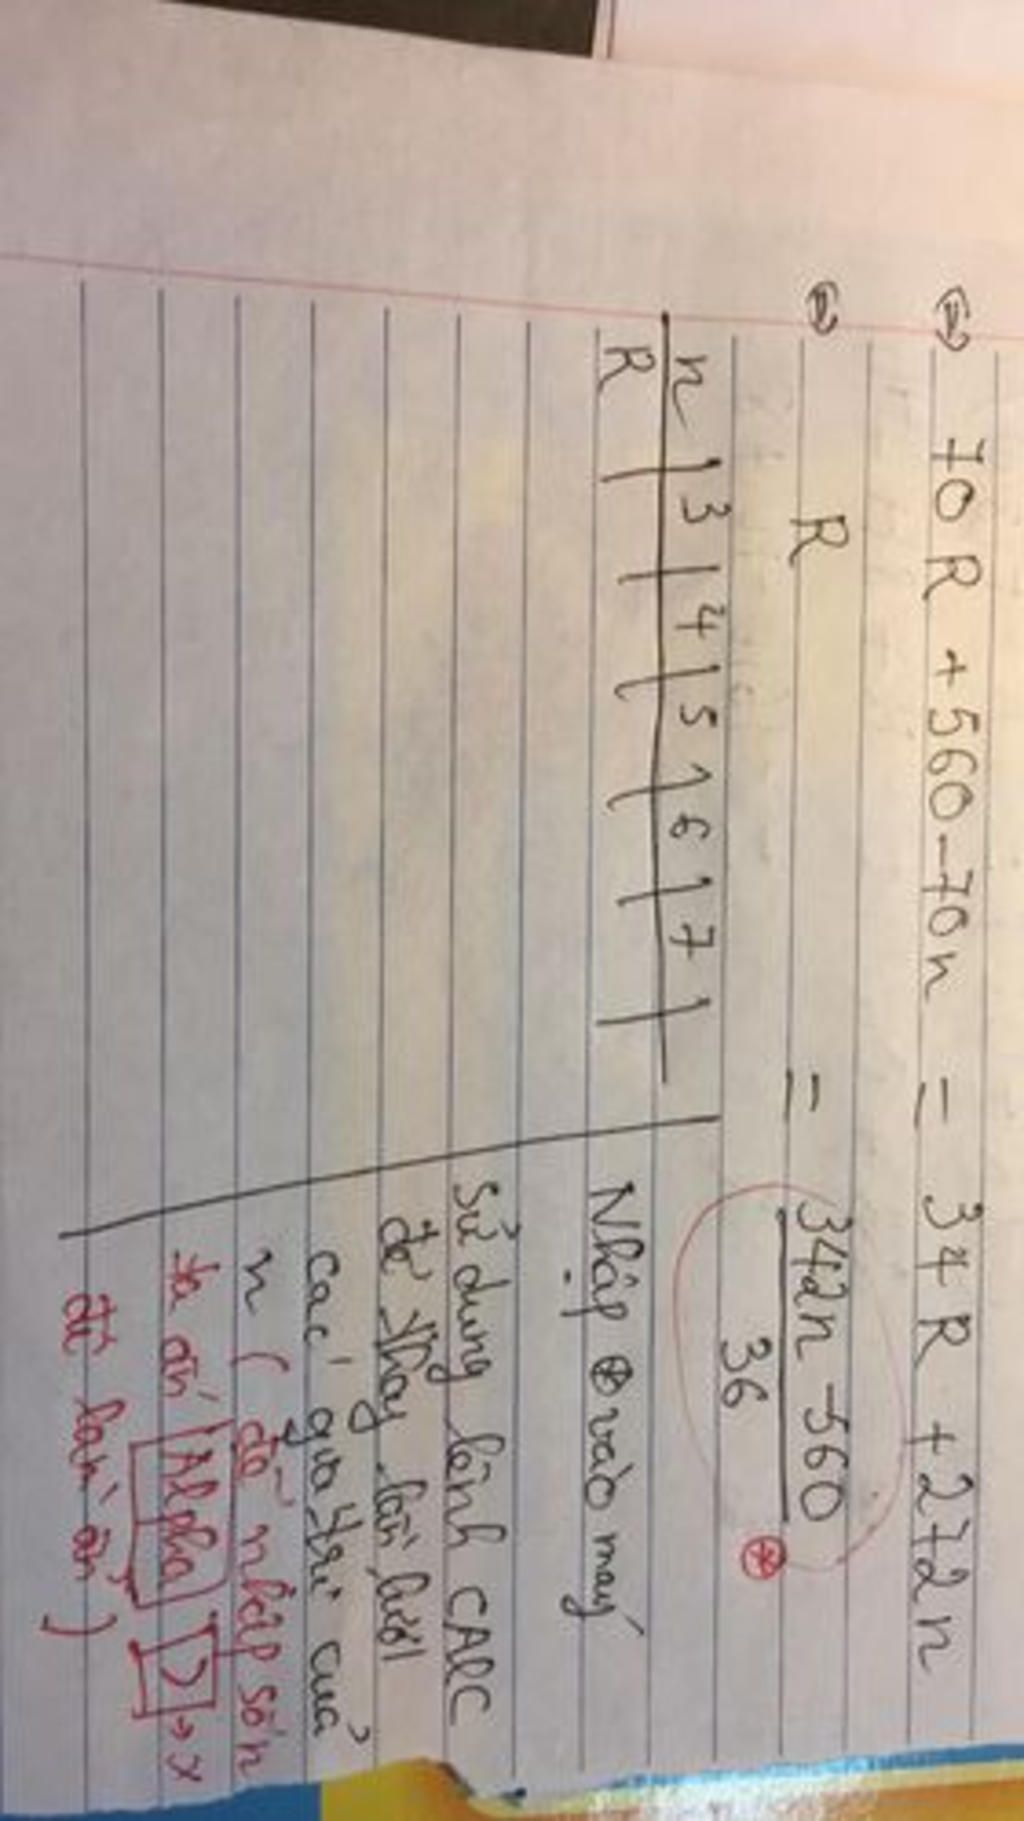 (=) 70 R + 560 - 70n = 34 R + 272n
(=) R = 342n - 560
36
(*)
n | 3 | 4 | 5 | 6 | 7 |
R | | | | | |
Nhập (*) vào máy
Sử dụng lệnh CALC
để thay lần lượt
các giá trị của
n ( để nhập số n
ta ấn Alpha ) → x
đi làm ẩn )